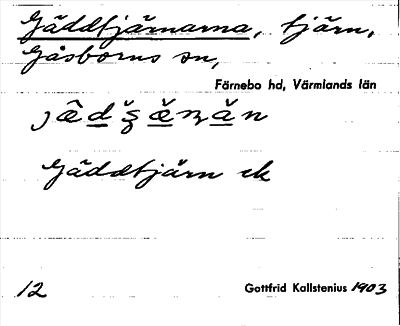 Gäddtjärnarna, tjärn,
Gåsborns sn,
Färnebo hd, Värmlands län
Gäddtjärn ek
12
Gottfrid Kallstenius 1903